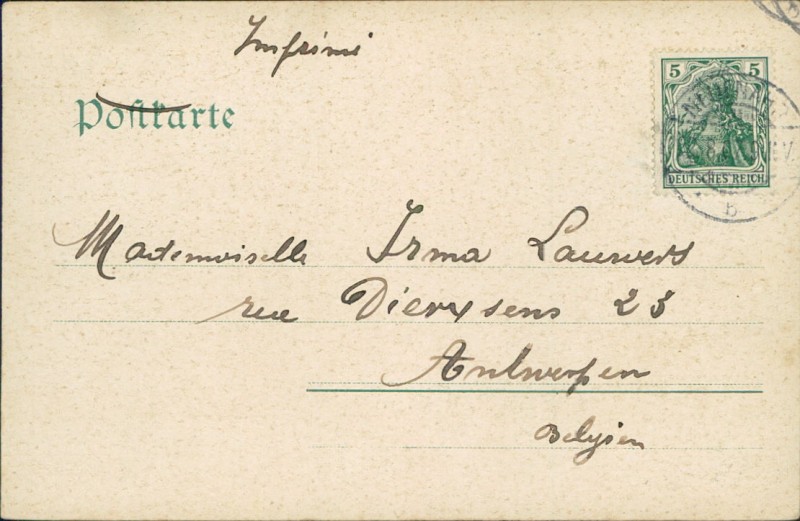 Imprimé
Postkarte
5 5
DEUTSCHES REICH
b
Mademoiselle Irma Lauwers
rue Dierxsens 23
Antwerpen
Belgien